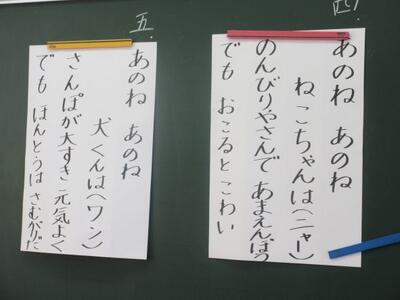 四.
あのね あのね
ねこちゃんは(ニャー)
のんびりやさんであまえんぼう
でも おこるとこわい
五.
あのね あのね
犬くんは(ワン)
さんぽが大すき 元気よく
でも ほんとうは さむがりだ